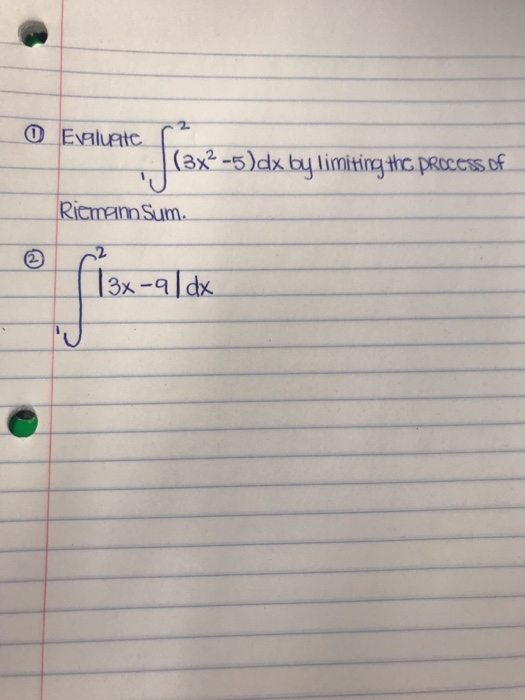 ① Evaluate ∫₁² (3x² -5)dx by limiting the process of
Riemann Sum.
② ∫₁² |3x-9|dx